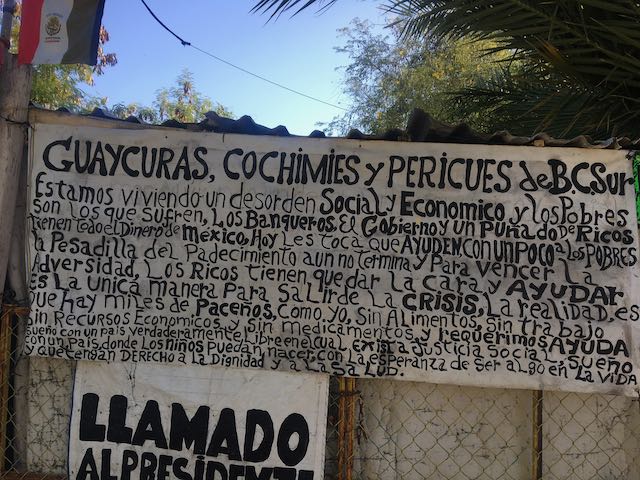 GUAYCURAS, COCHIMIES Y PERICUES de BCSur
Estamos viviendo un desorden Social y Economico y los Pobres
son los que sufren, Los Banqueros, El Gobierno y un Puñado de Ricos
tienen todo el Dinero de mexico, Hoy Les toca que AYUDEN CON UN POCO a los POBRES
La Pesadilla del Padecimiento aun no termina y Para vencer la
adversidad, Los Ricos tienen que dar la cara y AYUDAR
es La unica manera Para SaLir de La CRISIS, La realidad es
que hay miles de Paceños, Como, Yo, Sin Alimentos, Sin trabajo
Sin Recursos Economicos, y Sin medicamentos y requerimos AYUDA
sueño con un país verdaderamente Libre en el cual exista Justicia Social, Sueño
con un país, donde Los niños Puedan, nacer con La esperanza de Ser algo en La ViDA
y que tengan DERECHO a La Dignidad y a La SaLUD.
LLAMADO
AL PRESIDENTE